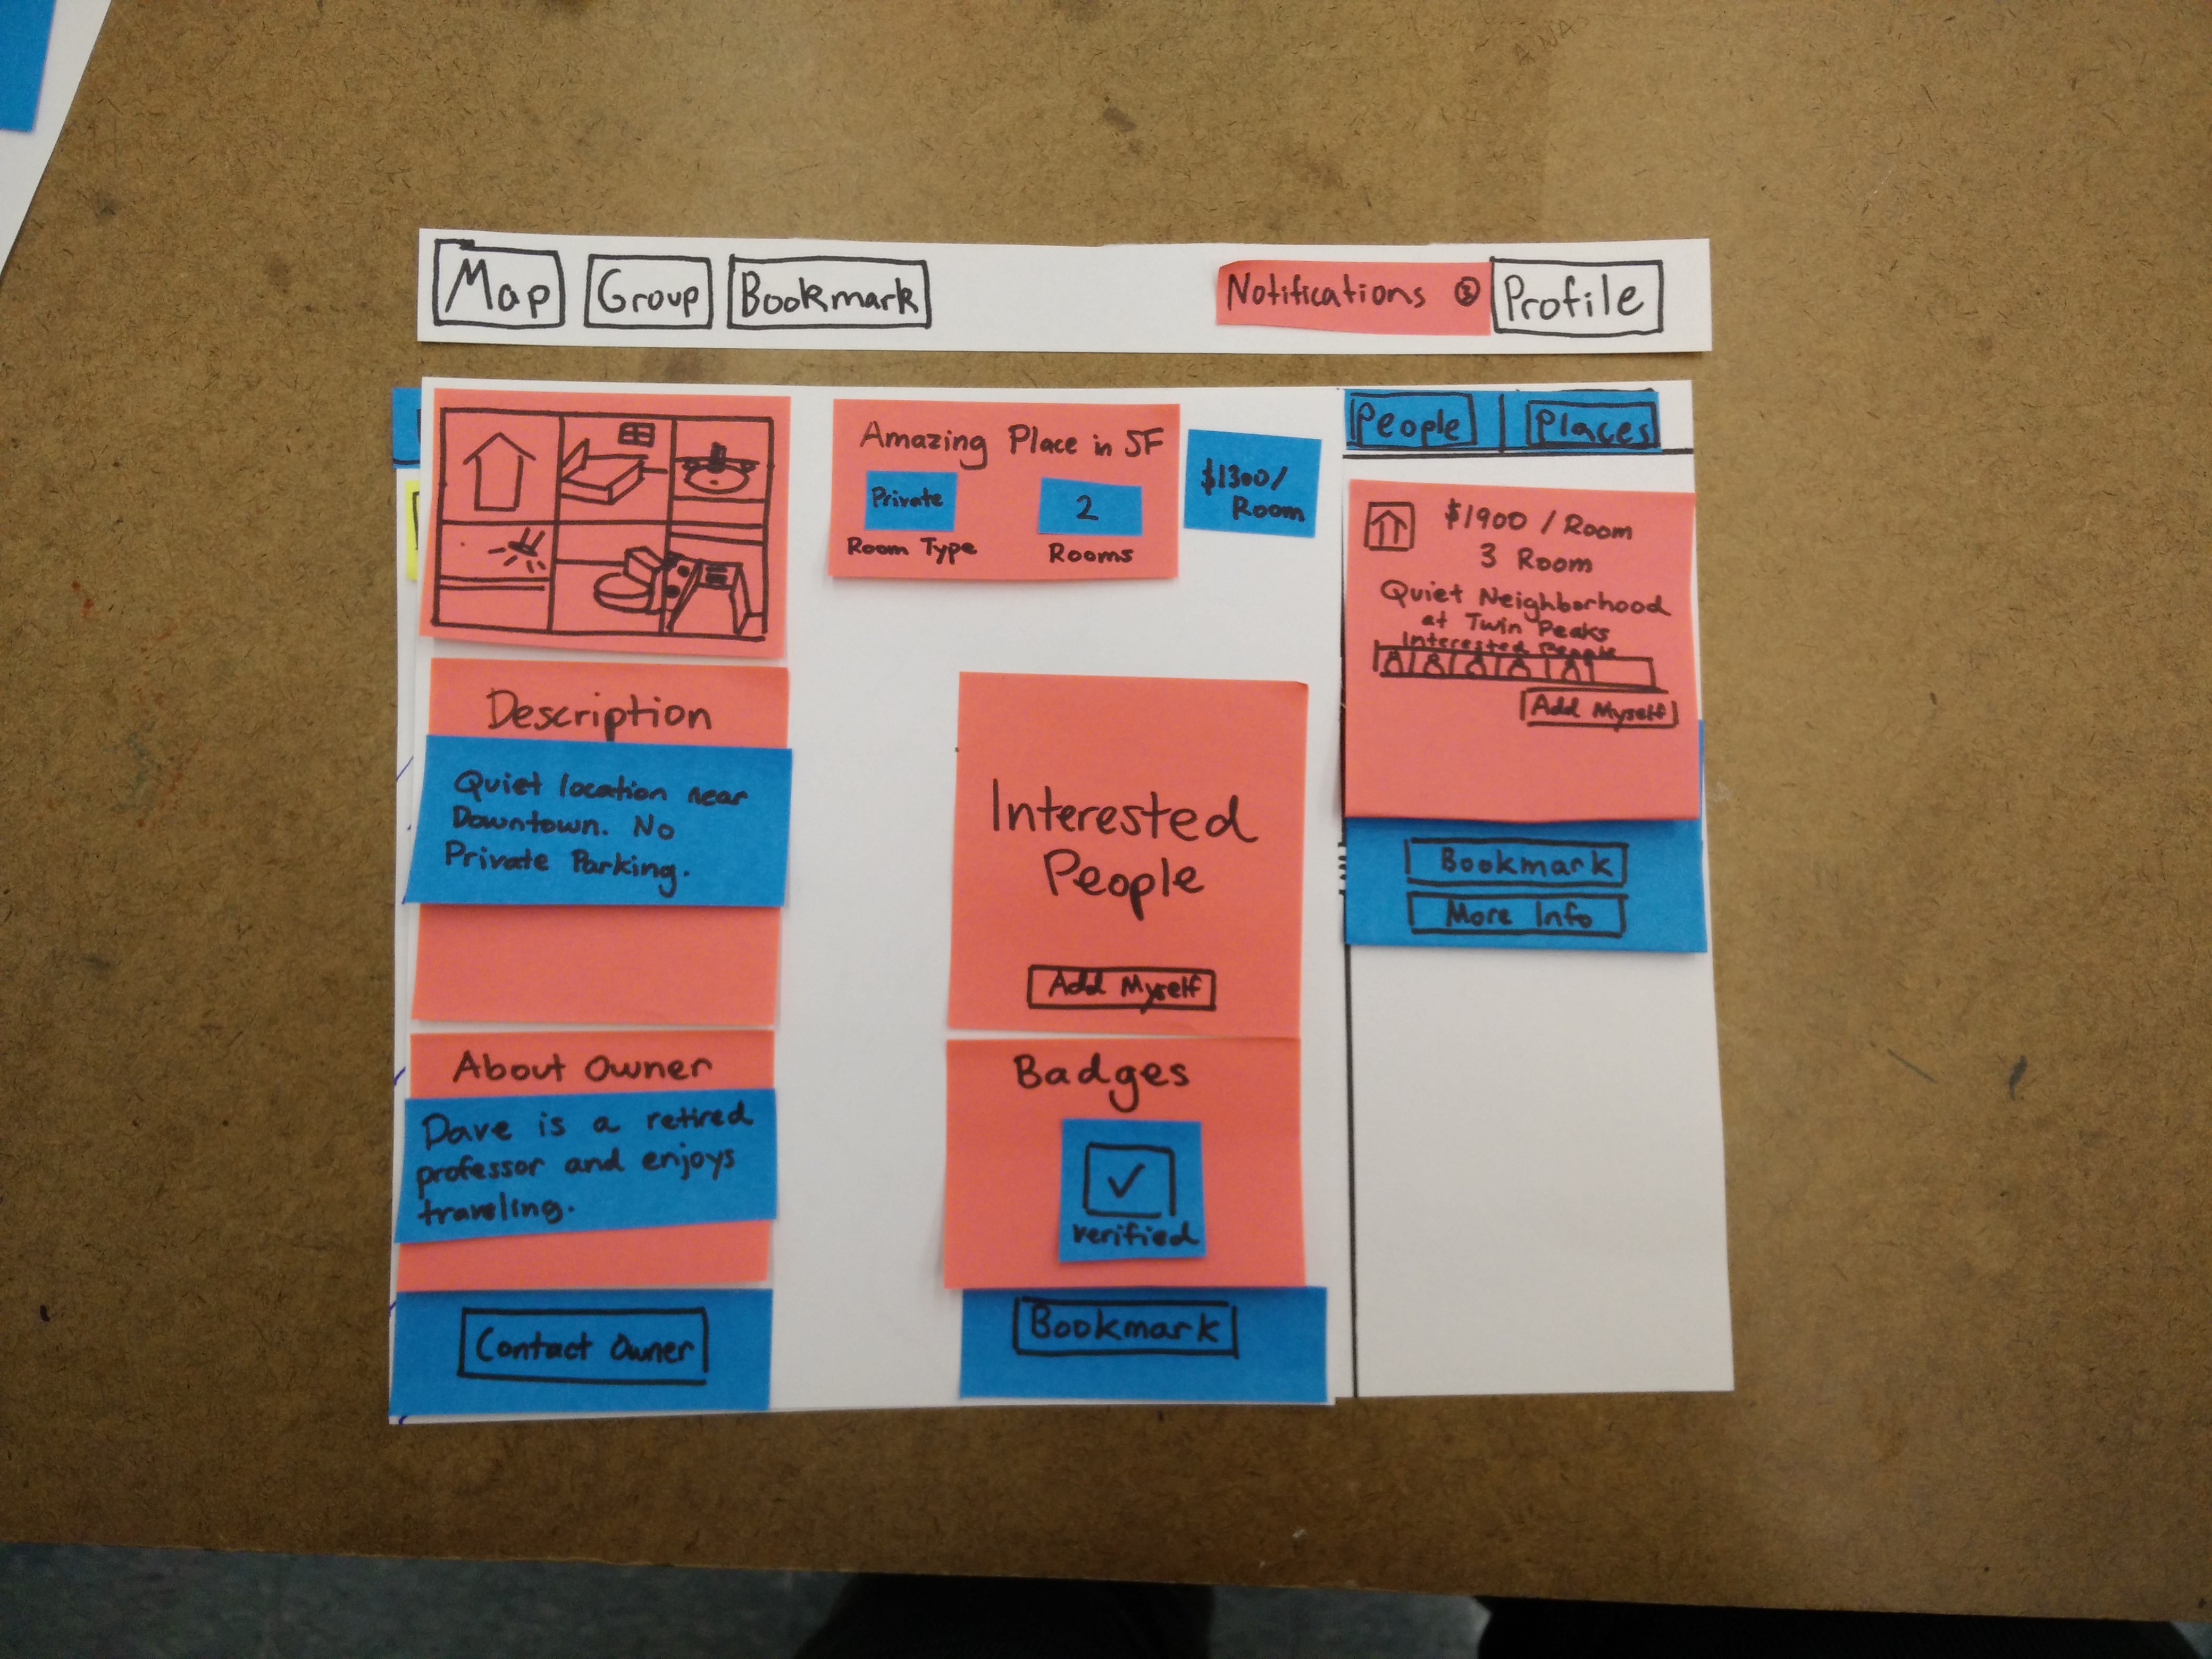 Map
Group
Bookmark
Notifications
Profile
Amazing Place in SF
Private
Room Type
2
Rooms
$1300/
Room
Description
Quiet location near
Downtown. No
Private Parking.
About Owner
Dave is a retired
professor and enjoys
traveling.
Contact Owner
Interested
People
Add Myself
Badges
verified
Bookmark
People
Places
$1900 / Room
3 Room
Quiet Neighborhood
at Twin Peaks
Interested People
Add Myself
Bookmark
More Info